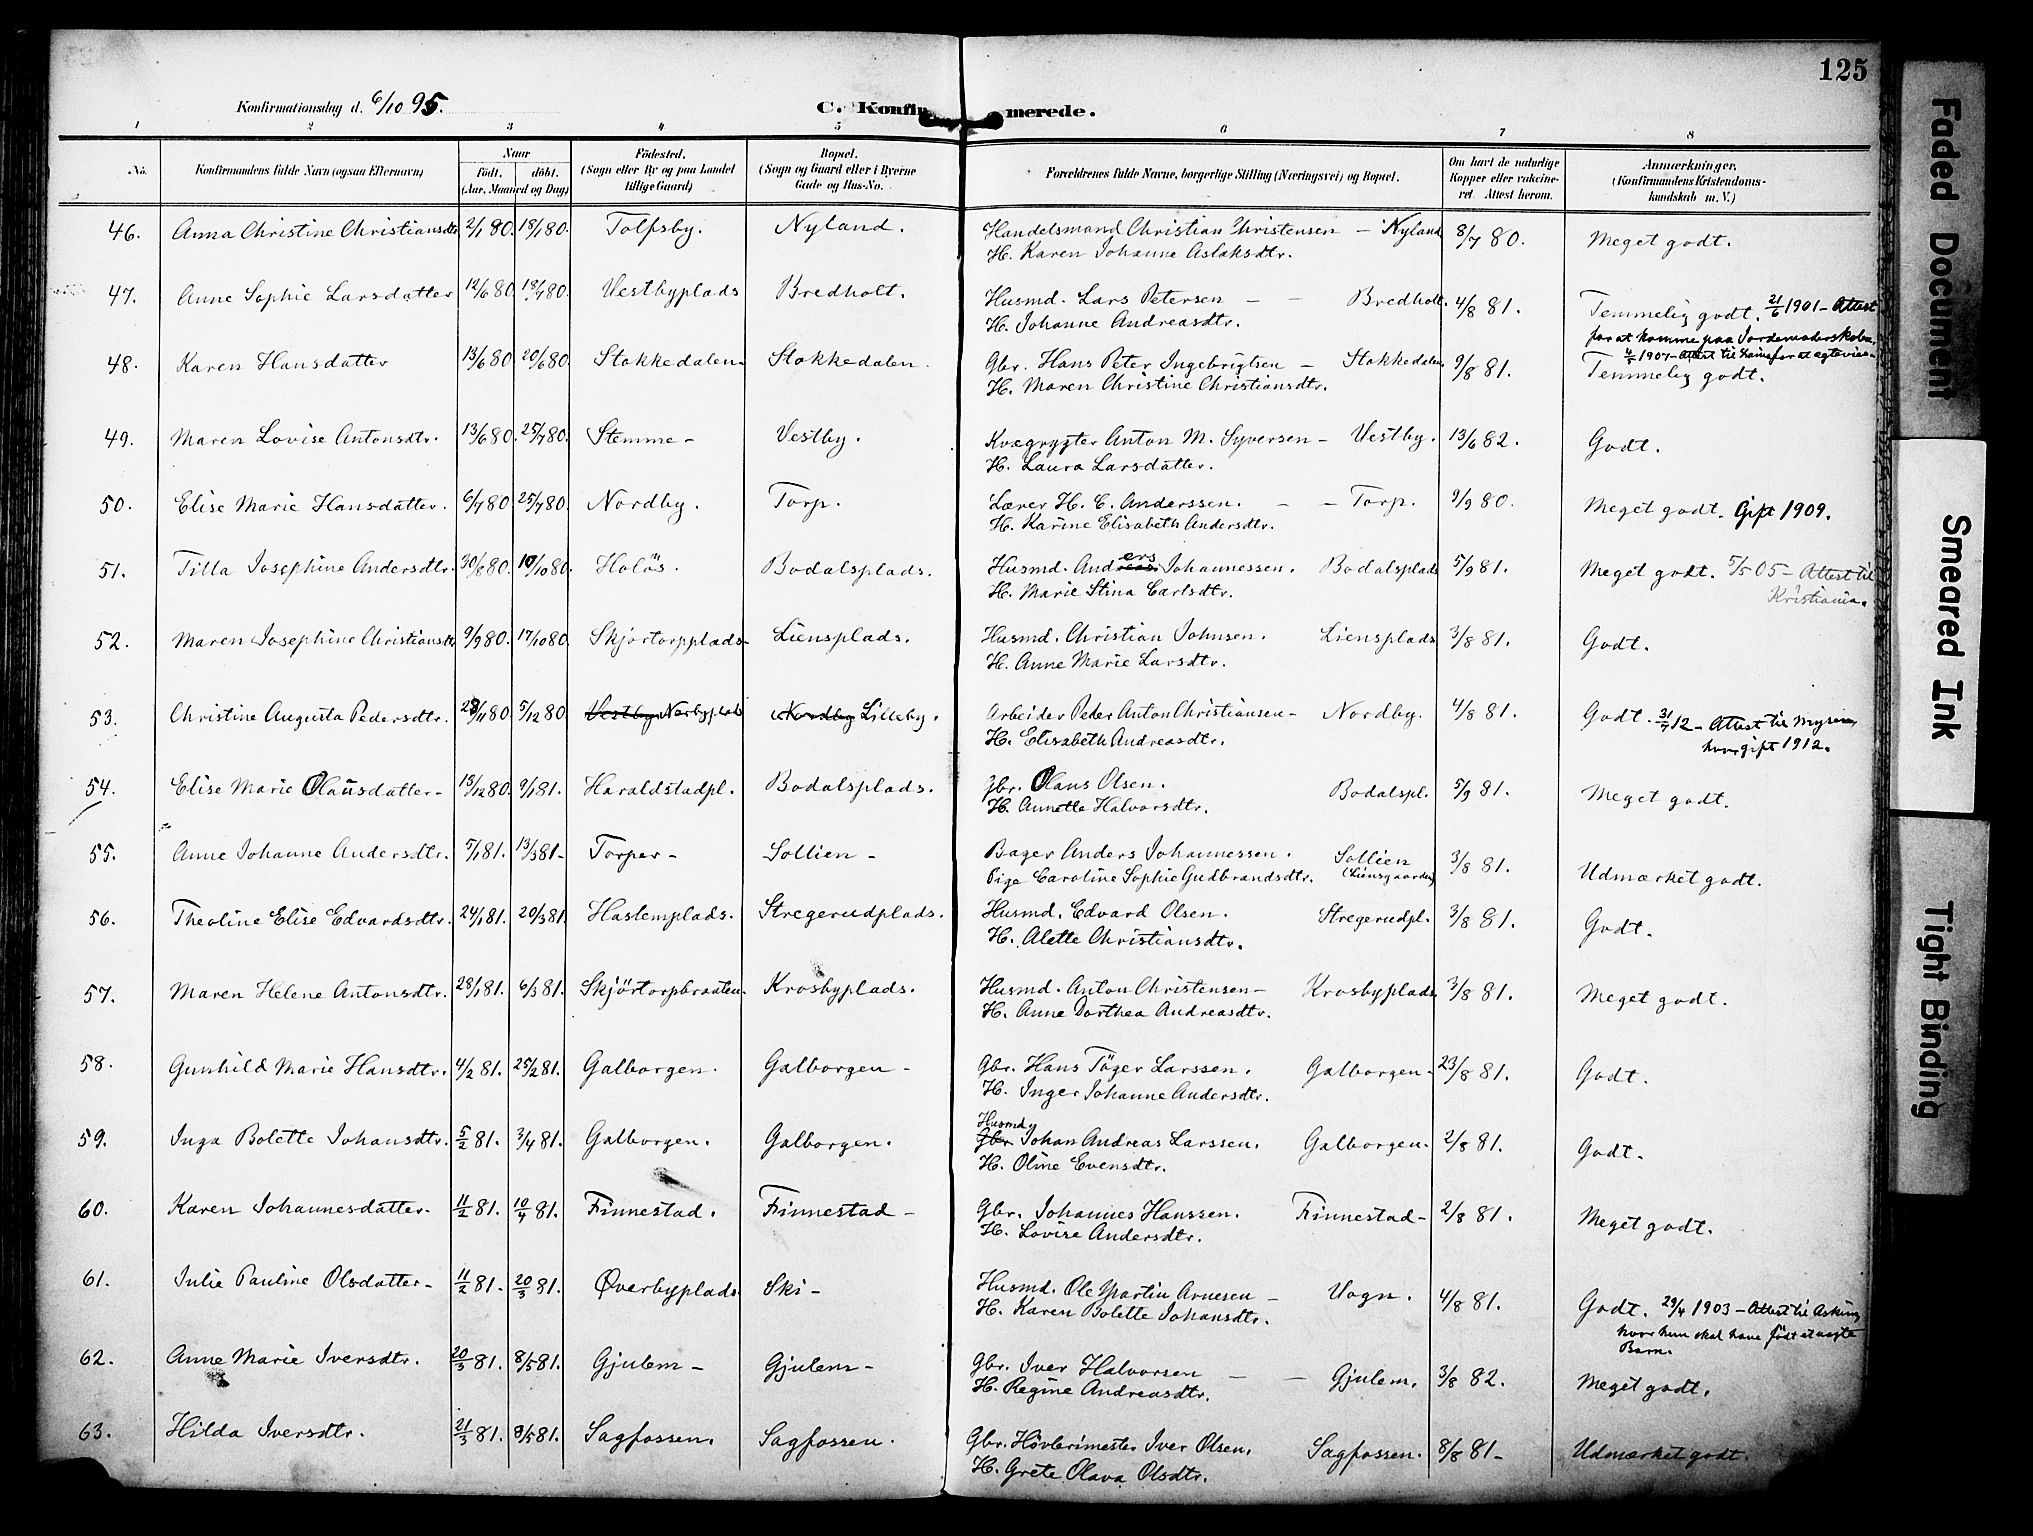 125
Konfirmationsdag d. 6/10 95.
C. Konfirmerede.
1 2 3 4 5 6 7 8
No. Konfirmandens fulde Navn (ogsaa Efternavn) Naar Födt. döbt. (Aar, Maaned og Dag) Födested. (Sogn eller By og paa Landet tillige Gaard) Bopæl. (Sogn og Gaard eller i Byerne Gade og Hus-No. Forældrenes fulde Navne, borgerlige Stilling (Næringsvei) og Bopæl. Om havt de naturlige Kopper eller vakcineret. Attest herom. Anmærkninger. (Konfirmandens Kristendomskundskab m. V.)
46. Anna Christine Christiansdtr 2/1 80. 18/1 80. Tolfsby. Nyland. Handelsmand Christian Christensen – Nyland 8/7 80. Meget godt.
H. Karen Johanne Aslaksdtr.
47. Anne Sophie Larsdatter 12/6 80. 18/7 80. Vestbyplads Bredholt. Husmd. Lars Petersen – – Bredholt. 4/8 81. Temmelig godt. 21/6 1901 – Attest
H. Johanne Andreasdtr. for at komme paa Jordemoderskolen.
48. Karen Hansdatter 13/6 80. 20/6 80. Stokkedalen. Stokkedalen. Gbr. Hans Peter Ingebrigtsen – Stokkedalen. 9/8 81. Temmelig godt.
H. Maren Christine Christiansdtr.
49. Maren Lovise Antonsdtr. 13/6 80. 25/7 80. Stemme – Vestby. Kvægrygter Anton M. Syversen – Vestby. 13/6 82. Godt.
H. Laura Larsdatter.
50. Elise Marie Hansdatter. 6/7 80. 25/7 80. Nordby. Torp. Lærer H. C. Anderssen. – – Torp. 9/9 80. Meget godt. Gift 1909.
H. Karine Elisabeth Andersdtr.
51. Tilla Josephine Andersdtr. 30/8 80. 10/10 80. Holös. Bodalsplads. Husmd. Anders Johannessen. Bodalsplads 5/9 81. Meget godt. 5/5 05 – Attest til
H. Marie Stina Carlsdtr. Kristiania.
52. Maren Josephine Christiansdtr 9/9 80. 17/10 80. Skjörtorpplads – Liensplads. Husmd. Christian Johnsen. Liensplads 3/8 81. Godt.
H. Anne Marie Larsdtr.
53. Christine Augusta Pedersdtr. 28/11 80. 5/12 80. Vestbye Norbyplads Nordby Lilleby. Arbeider Peder Anton Christiansen – Nordby. 4/8 81. Godt. 31/7 12 – Attest til Mysen,
H. Elisabeth Andreasdtr. hvor gift 1912.
54. Elise Marie Olausdatter – 13/12 80. 9/1 81. Haraldstadpl. Bodalsplads. Gbr. Olaus Olsen. Bodalspl. 5/9 81. Meget godt.
H. Annette Halvorsdtr.
55. Anne Johanne Andersdtr. 5/1 81. 13/3 81 – Torper – Sollien – Bager Anders Johannessen. Sollien 3/8 81. Udmærket godt.
Pige Caroline Sophie Gudbrandsdtr. (Liensgaarden)
56. Theoline Elise Edvardsdtr. 24/1 81. 20/3 81. Haslemplads. Stregerudplads. Husmd. Edvard Olsen. Stregerudpl. 3/8 81. Godt.
H. Alette Christiansdtr.
57. Maren Helene Antonsdtr. 28/1 81. 6/3 81. Skjörtorpbraaten. Krosbyplads. Husmd. Anton Christensen – Krosbyplads 3/8 81. Meget godt.
H. Anne Dorthea Andreasdtr.
58. Gunhild Marie Hansdtr. 4/2 81. 25/2 81. Galborgen. Galborgen – Gbr. Hans Töger Larssen. Galborgen – 23/8 81. Godt.
H. Inger Johanne Andersdtr.
59. Inga Bolette Johansdtr. 5/2 81. 3/4 81. Galborgen. Galborgen. Husmd Gbr. Johan Andreas Larssen. Galborgen. 2/8 81. Godt.
H. Oline Evensdtr.
60. Karen Johannesdatter. 11/2 81. 10/4 81. Finnestad. Finnestad – Gbr. Johannes Hanssen. Finnestad – 2/8 81. Meget godt.
H. Lovise Andersdtr.
61. Julie Pauline Olsdatter – 11/2 81. 20/3 81. Øverbyplads Ski – Husmd. Ole Martin Arnesen – Vogn. 4/8 81. Godt. 29/4 1903 – Attest til Askim,
H. Karen Bolette Johansdtr. hvor hun skal have födt et uægte
Barn.
62. Anne Marie Iversdtr. 20/3 81. 8/5 81. Gjulem – Gjulem – Gbr. Iver Halvorsen – – Gjulem. 3/8 82. Meget godt.
H. Regine Andreasdtr.
63. Hilda Iversdtr. 21/3 81. 8/5 81. Sagfossen. Sagfossen. Gbr. Hövlerimester Iver Olsen. Sagfossen. 8/8 81 – Udmærket godt.
H. Grete Olava Olsdtr.
Faded Document
Smeared Ink
Tight Binding